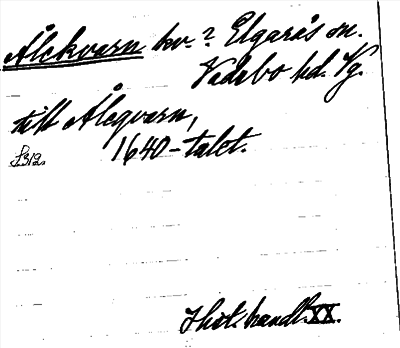 Ålekvarn kv.? Elgarås sn.
Vadsbo hd. Vg.
till Åleqvarn,
1640-talet.
S. 312.
Hist. handl. XX.